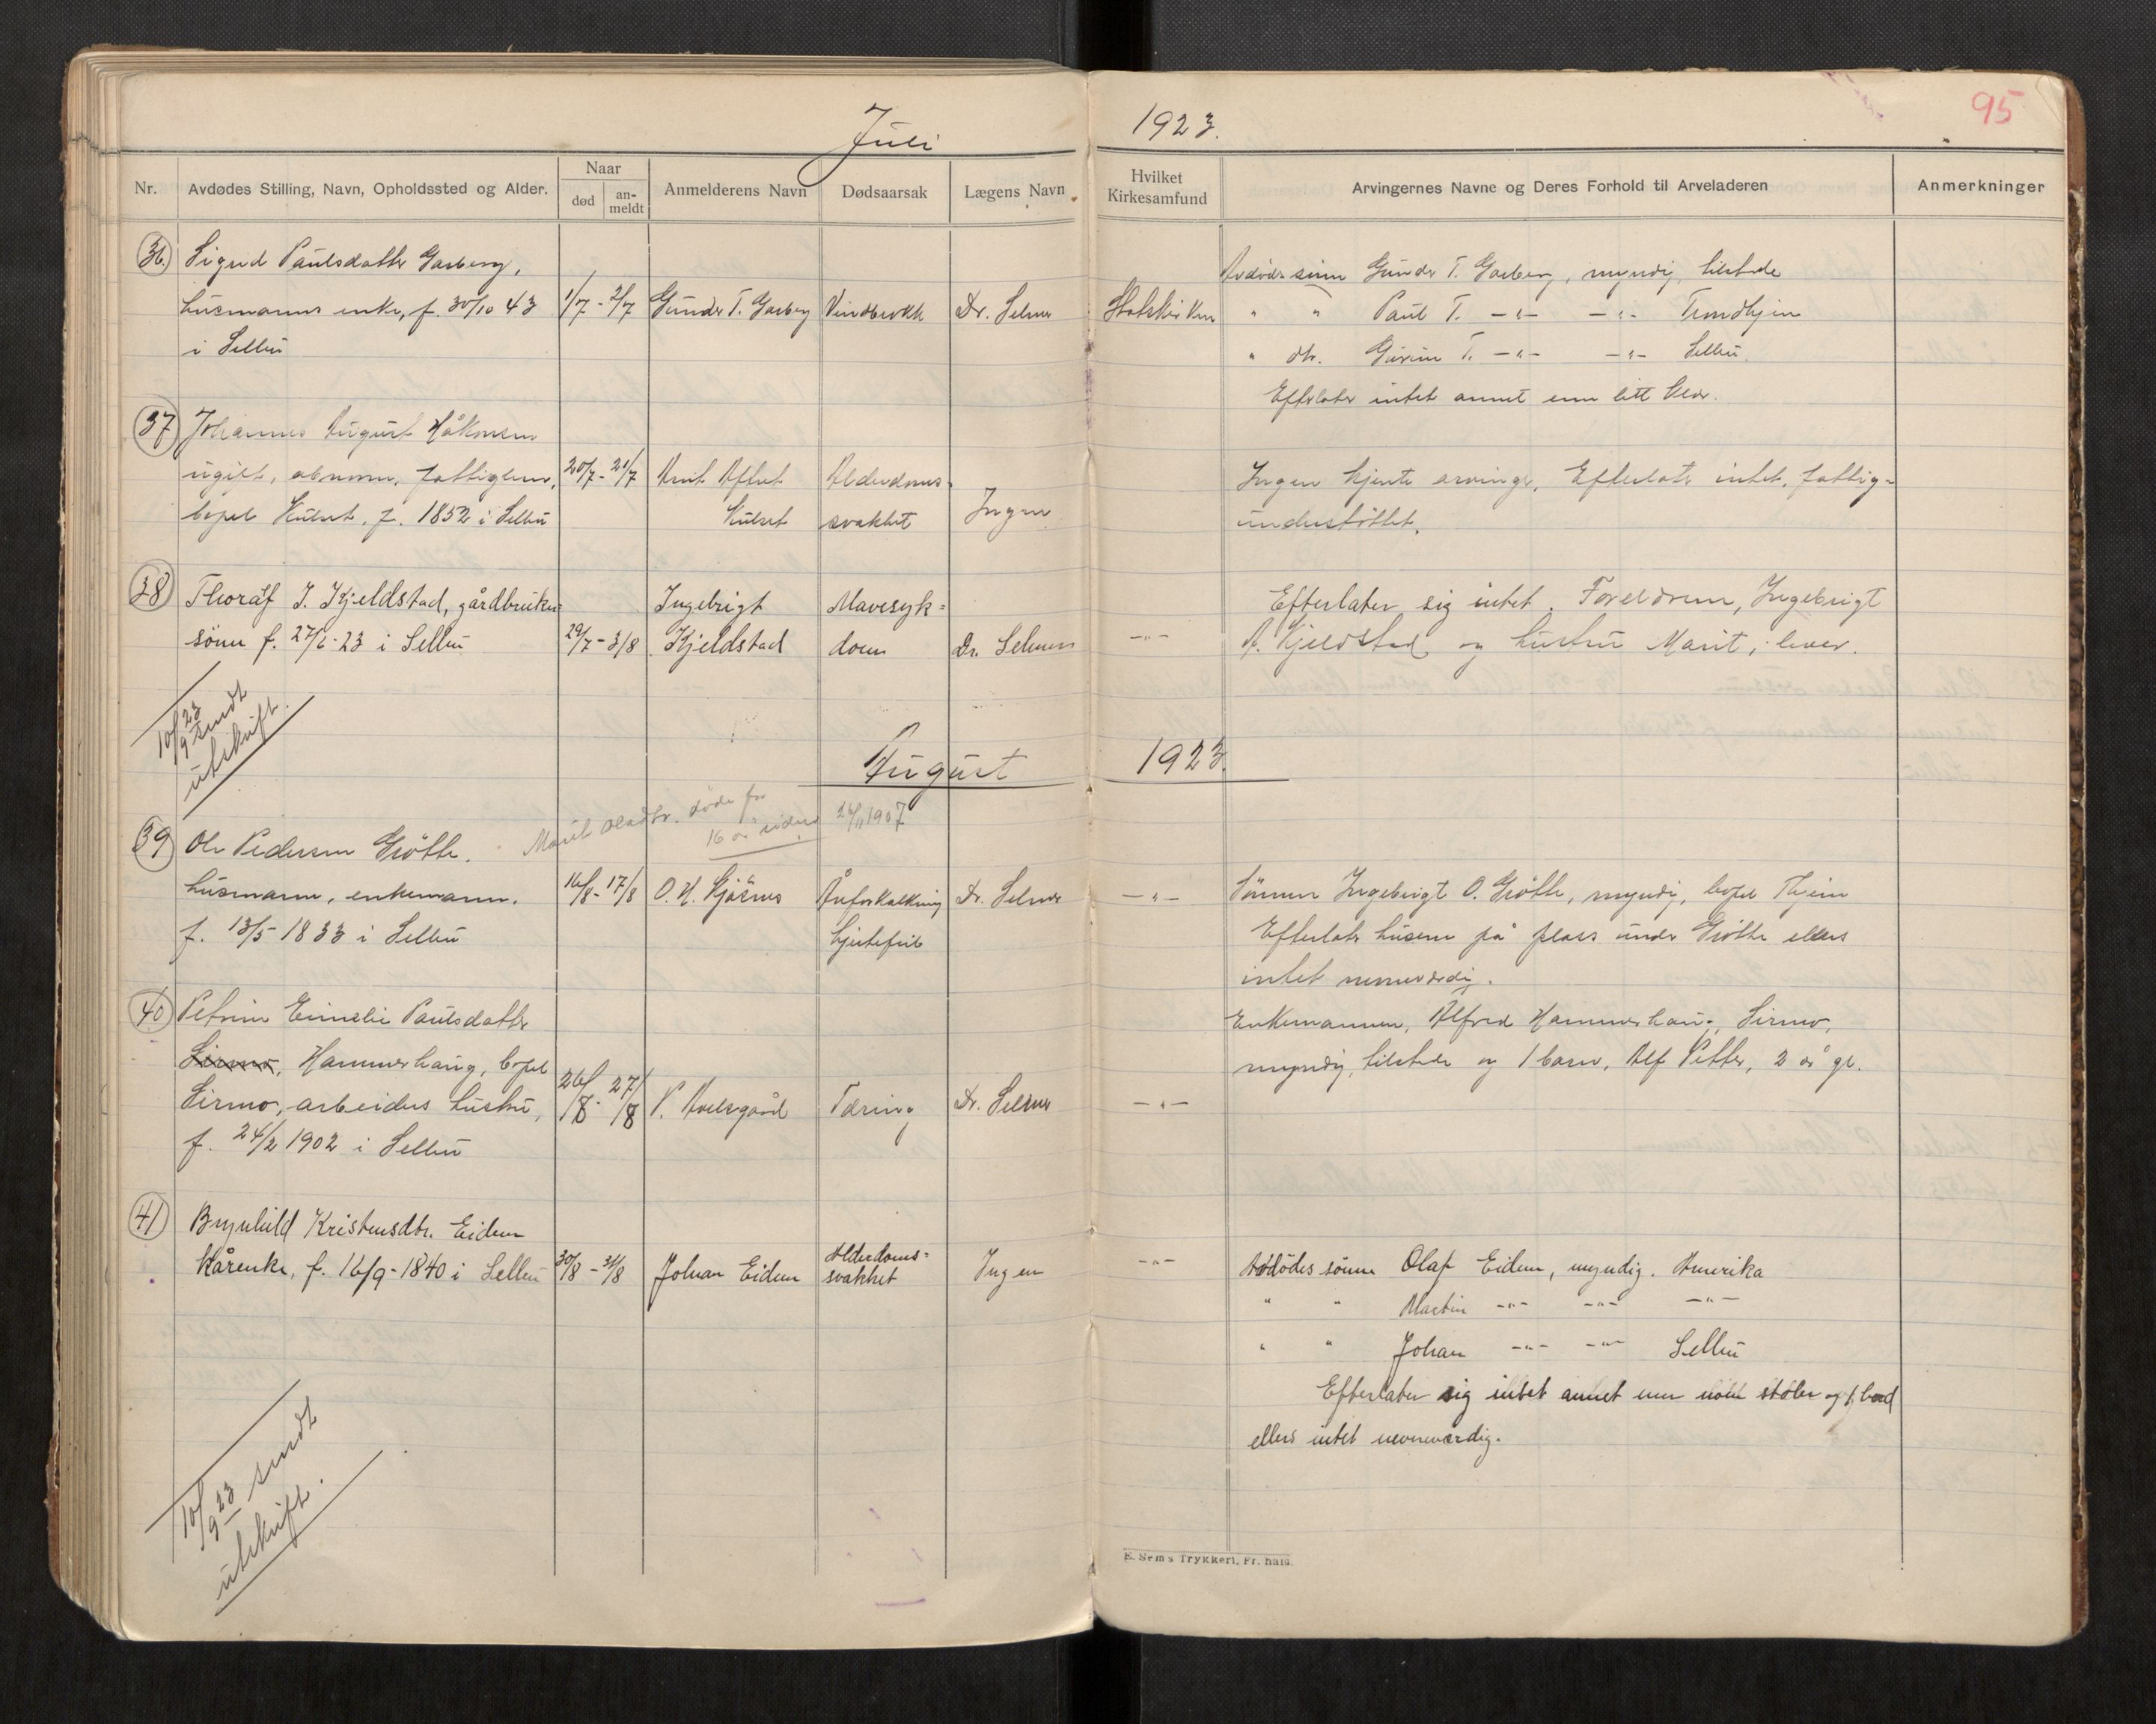 Juli
1923.
95
Nr.
Avdødes Stilling, Navn, Opholdssted og Alder.
Naar
død
an-
meldt
Anmelderens Navn
Dødsaarsak
Lægens Navn
Hvilket
Kirkesamfund
Arvingernes Navne og Deres Forhold til Arveladeren
Anmerkninger
36.
Sigrid Paulsdatter Garberg,
husmanns enke, f. 30/10 43
i Selbu
1/7 - 2/7
Gunder T. Garberg
Dr. Selmer
Statskirken
Avdødes sønn Gunder T. Garberg, myndig, tilstede
" " Paul T. -"- -"- Trondhjem
" dtr. Guruu T. -"- -"- Selbu.
Efterlater intet annet enn litt klær.
37
Johannes August Håkonsen
ugift, abnorm, fattiglem,
bopel Kulset, f. 1852 i Selbu
20/7 - 21/7
Arnt Aftret
Kulset
Alderdoms-
svakhet
Ingen
Ingen kjente arvinger. Efterlater intet, fattig-
understøttet.
38
Thoralf I. Kjeldstad, gårdbruker-
sønn f. 27/6-23 i Selbu
29/7 - 3/8
Ingebrigt
Kjeldstad
Mavesyk-
dom
Dr. Selmer
-"-
Efterlater sig intet. Foreldrene, Ingebrigt
A. Kjeldstad og hustru Marit, lever.
10/9 23 sendt
utskrift.
August
1923.
Marit Oladtr. døde for
16 år siden
26/11 1907
39
Ole Pedersen Grøtte.
husmann, enkemann.
f. 13/5 1833 i Selbu
16/8 - 17/8
O. H. Kjøsnes
Åreforkalkning
hjertefeil
Dr. Selmer
-"-
Sønnen Ingebrigt O. Grøtte, myndig, bopel Thjem
Efterlater husene på plass under Grøtte ellers
intet nevneverdig.
40
Petrine Emelie Paulsdatter
Sirmo, Hammerhaug, bopel
Sirmo, arbeiders hustru,
f. 24/2 1902 i Selbu
26/8 - 27/8
P. Avelsgaard
Tæring
Dr. Selmer
-"-
Enkemannen, Alfred Hammerhaug, Sirmo,
myndig, tilstede og 1 barn, Alf Petter, 2 år gl.
41
Brynhild Kristensdtr. Eidem
kårenke, f. 16/9-1840 i Selbu
30/8 - 31/8
Johan Eidem
Alderdoms-
svakhet
Ingen
-"-
Avdødes sønn Olaf Eidem, myndig. Amerika
" " Martin -"- -"- -"-
" " Johan -"- -"- Selbu
Efterlater sig intet annet enn noen stoler og 1 bord
ellers intet nevneværdig.
10/9 23 sendt
utskrift.
E. Sem's Trykkeri, Fr. hald.